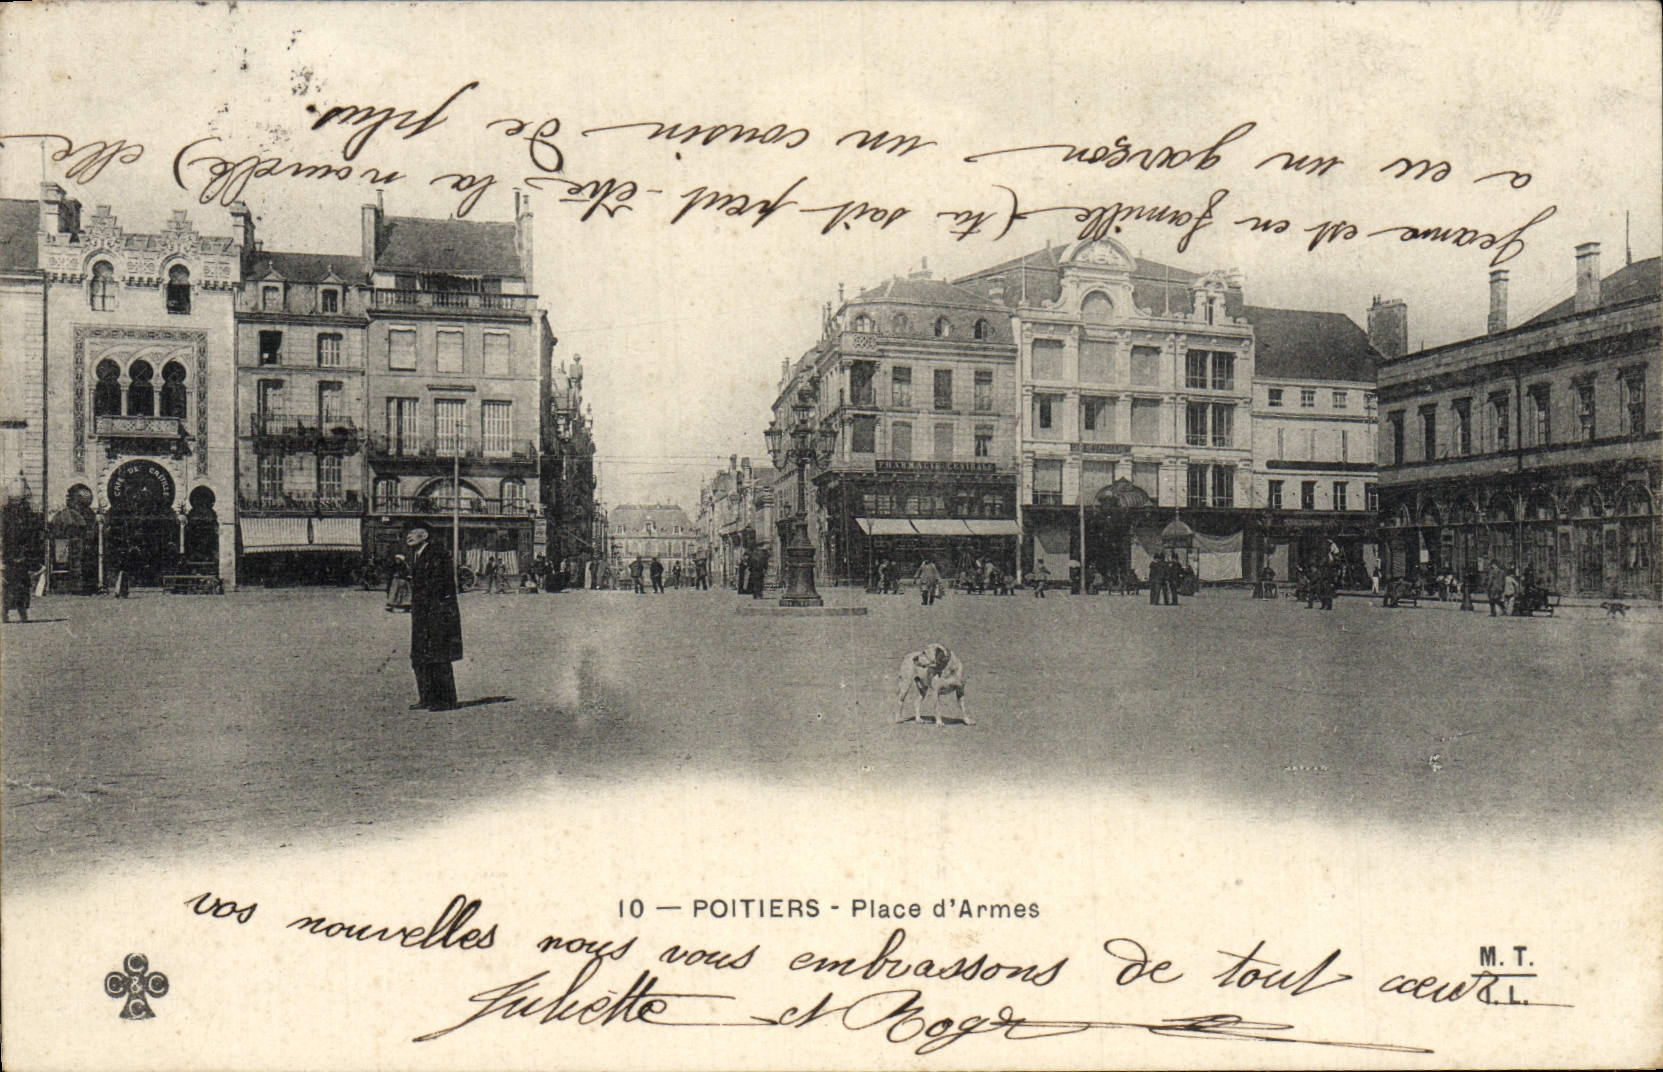 Jeanne est en famille (ta sait peut-être la nouvelle) elle
a eu un garçon un cousin de plus.
CAFÉ DE CASTILLE
PHARMACIE CENTRALE
10 — POITIERS - Place d'Armes
vos nouvelles nous vous embrassons de tout cœur
Juliette et Roger
M. T.
I. L.
C C & C C